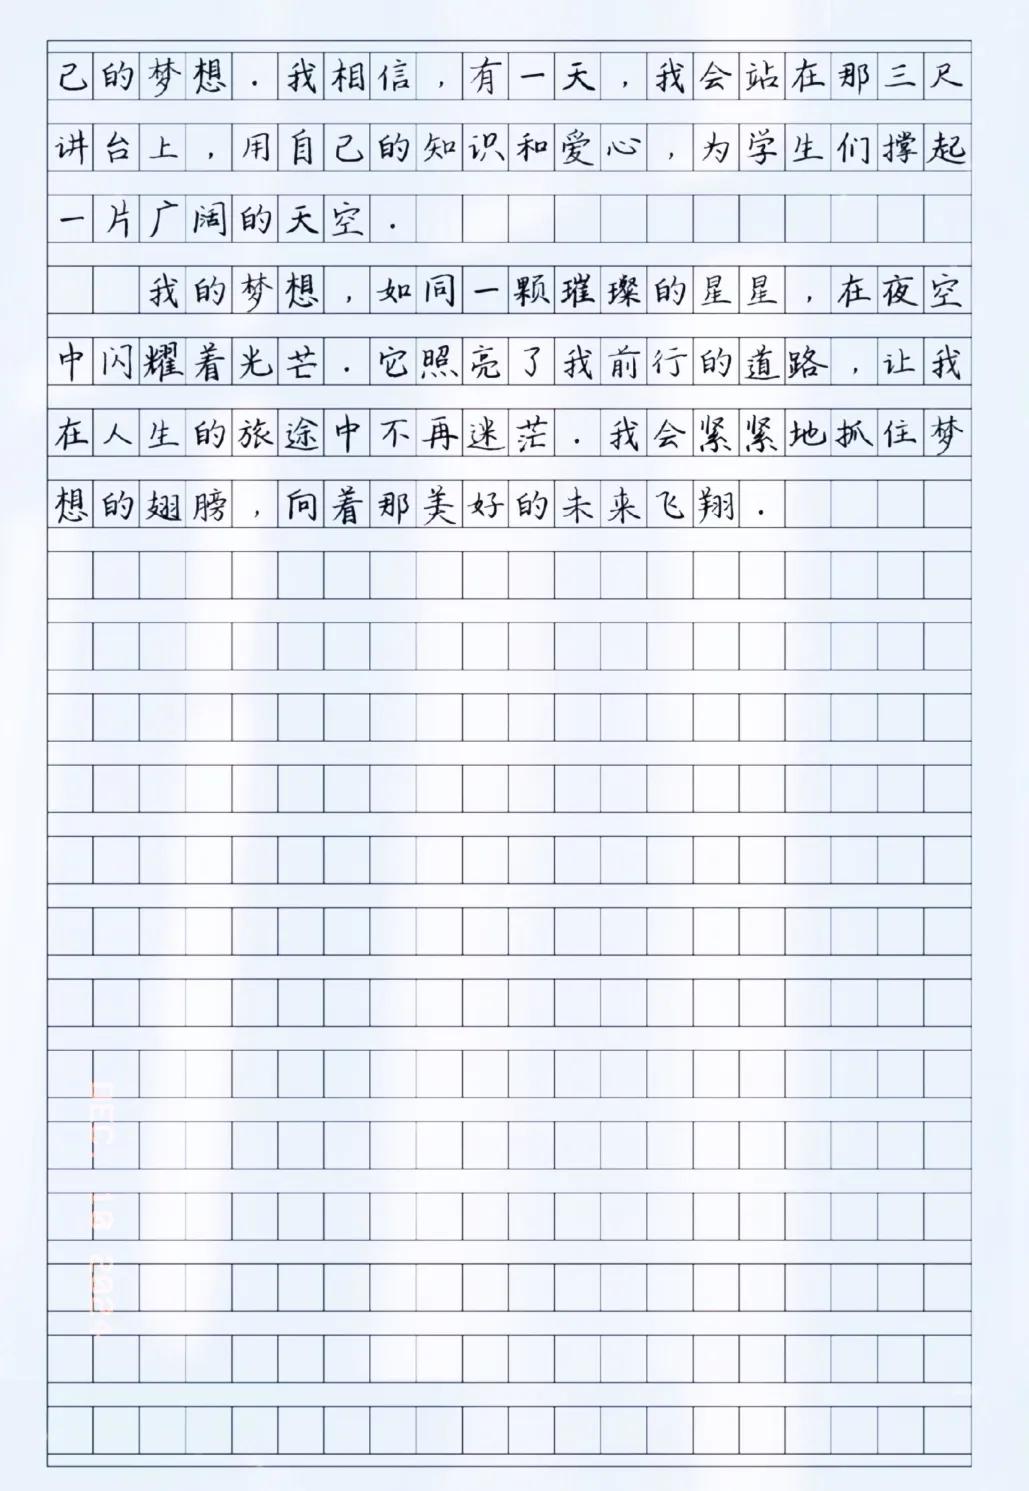 己的梦想．我相信，有一天，我会站在那三尺
讲台上，用自己的知识和爱心，为学生们撑起
一片广阔的天空．
我的梦想，如同一颗璀璨的星星，在夜空
中闪耀着光芒．它照亮了我前行的道路，让我
在人生的旅途中不再迷茫．我会紧紧地抓住梦
想的翅膀，向着那美好的未来飞翔．
DEC. 10 2024